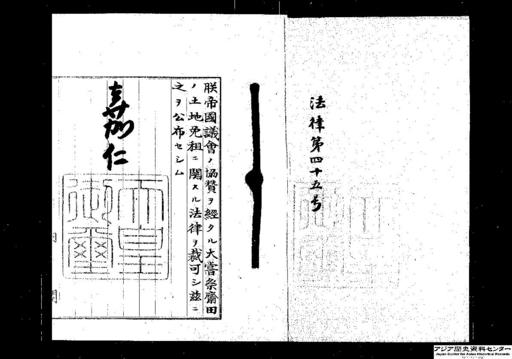 法律第四十五号
朕帝國議會ノ協賛ヲ經タル大嘗祭齋田
ノ土地免租ニ關スル法律ヲ裁可シ茲ニ
之ヲ公布セシム
嘉仁
天皇御璽
アジア歴史資料センター
Japan Center for Asian Historical Records